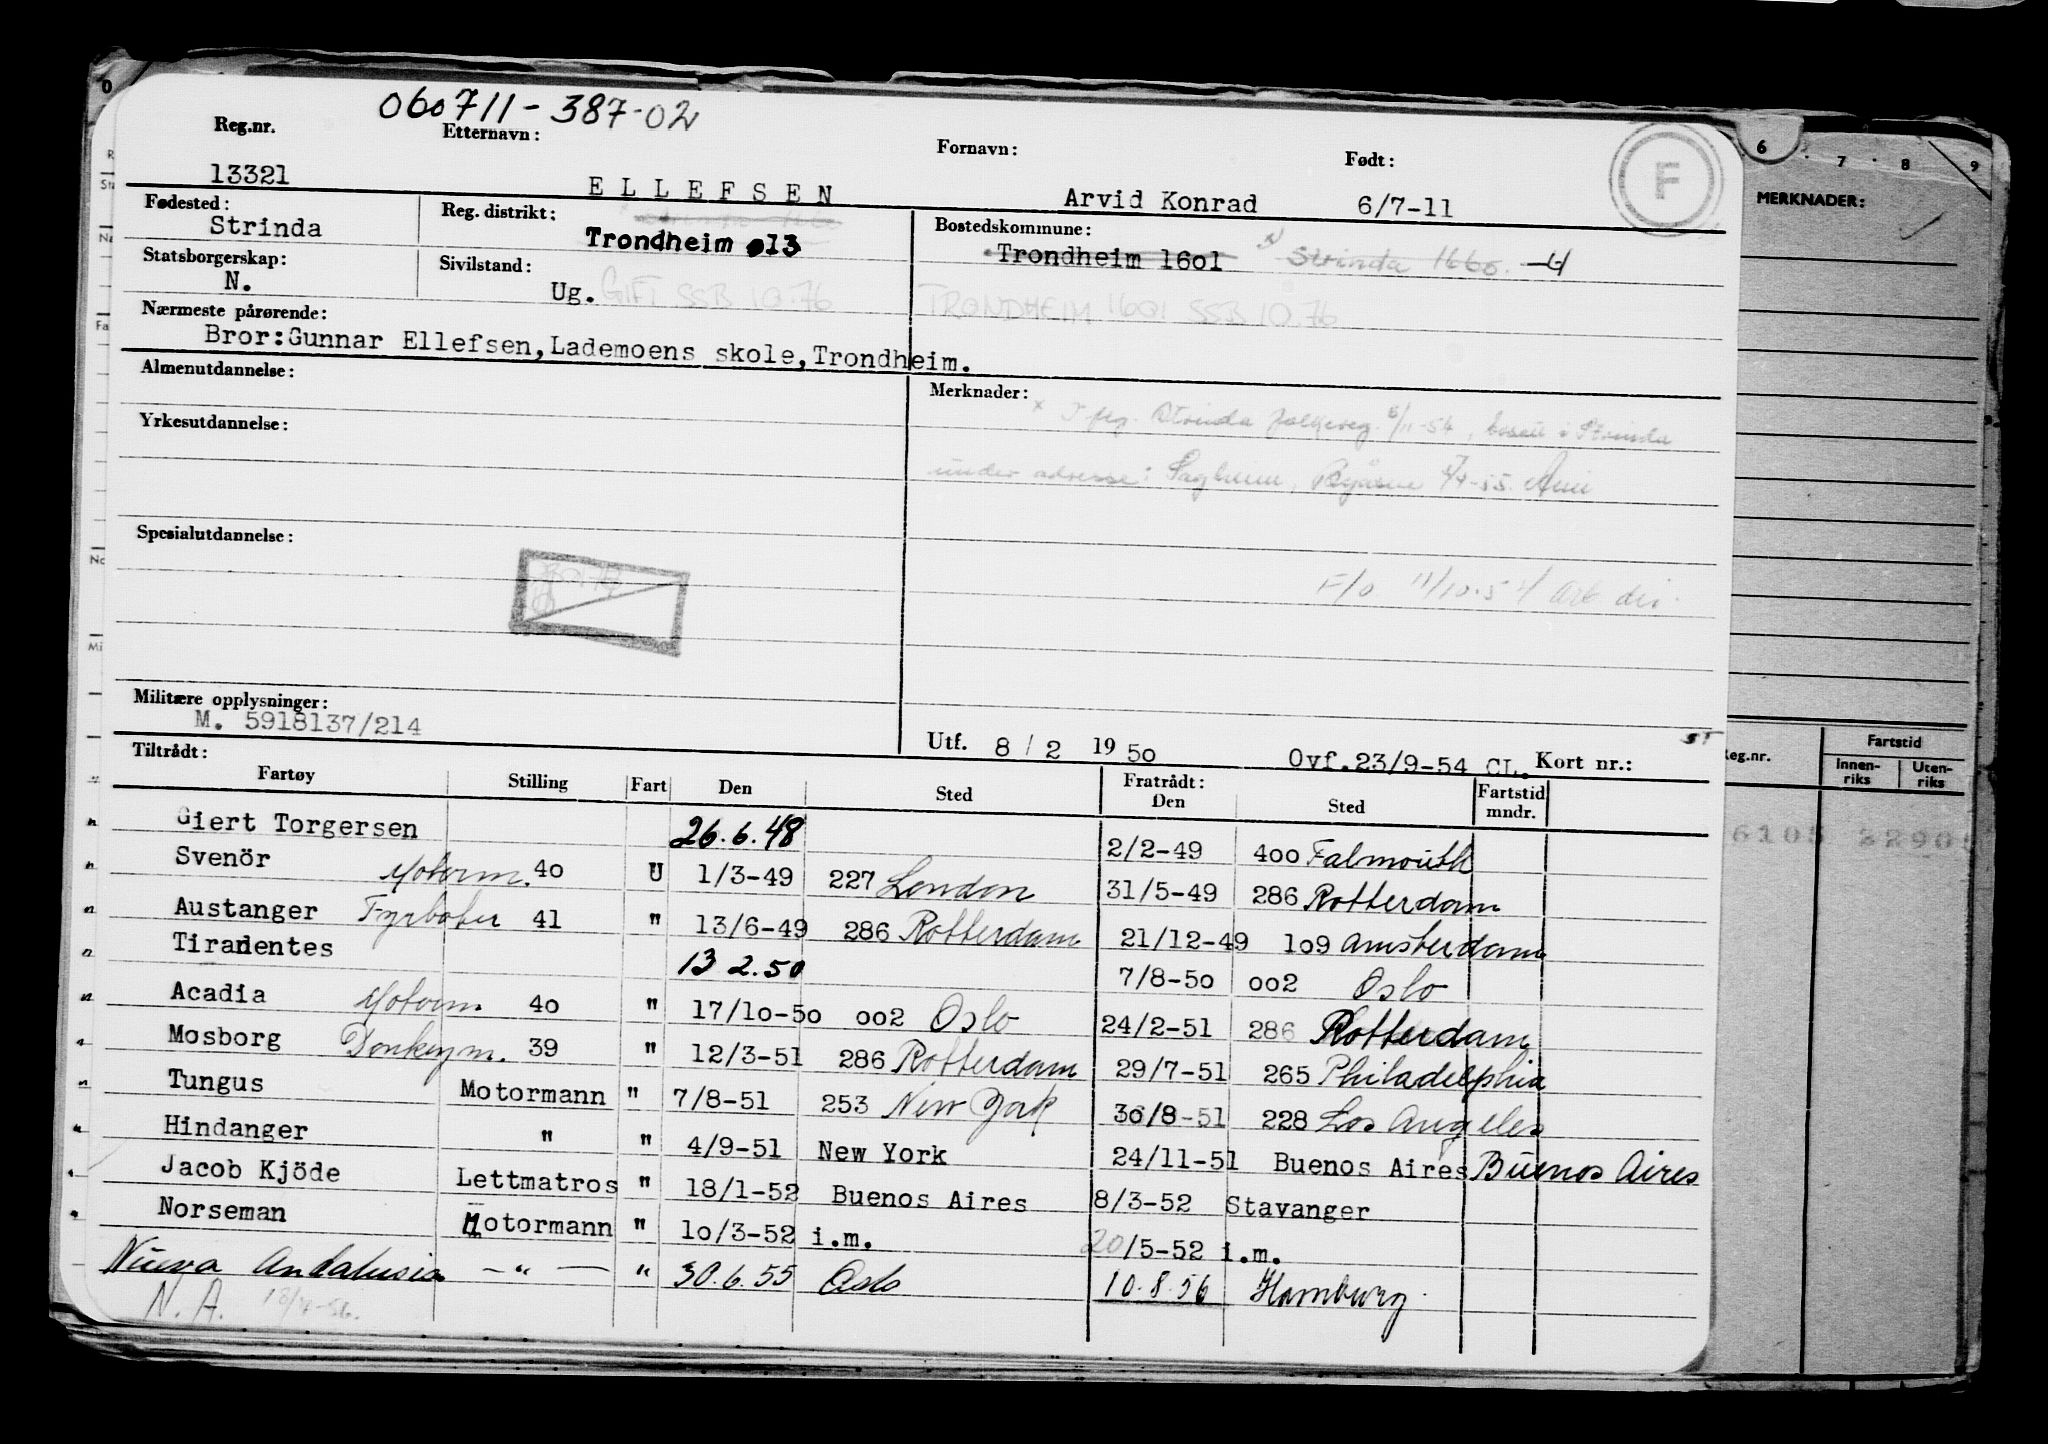 060711-387-02
Reg.nr. Etternavn: Fornavn: Født:
13321 ELLEFSEN Arvid Konrad 6/7-11
F
Fødested: Reg. distrikt: Bostedskommune:
Strinda Trondheim 13 Trondheim 1601 x) Strinda 1660. -4
Statsborgerskap: Sivilstand:
N. Ug. GIFT SSB 10.76 TRONDHEIM 1601 SSB 10.76
Nærmeste pårørende:
Bror:Gunnar Ellefsen,Lademoens skole,Trondheim.
Almenutdannelse: Merknader:
x I flg. Strinda folkereg. 5/11-54, bosatt i Strinda
Yrkesutdannelse:
under adresse: Sagheim, Byåsen
Spesialutdannelse:
F/o 11/10-54 Arb dir.
Militære opplysninger:
M. 5918137/214
Utf. 8/2 1950 Ovf.23/9-54 CL. Kort nr.:
ST
Tiltrådt: Fratrådt:
Fartøy Stilling Fart Den Sted Den Sted Fartstid mndr.
Giert Torgersen 26.6.48 2/2-49 400 Falmouth
Svenör Motorm. 40 U 1/3-49 227 London 31/5-49 286 Rotterdam
Austanger Fyrbøter 41 " 13/6-49 286 Rotterdam 21/12-49 109 Amsterdam
Tiradentes 13 2.50 7/8-50 002 Oslo
Acadia Motorm. 40 " 17/10-50 002 Oslo 24/2-51 286 Rotterdam
Mosborg Donkeym. 39 " 12/3-51 286 Rotterdam 29/7-51 265 Philadelphia
Tungus Motormann " 7/8-51 253 New York 30/8-51 228 Los Angeles
Hindanger " " 4/9-51 New York 24/11-51 Buenos Aires Buenos Aires
Jacob Kjöde Lettmatros " 18/1-52 Buenos Aires 8/3-52 Stavanger
Norseman Motormann " 10/3-52 i.m. 20/5-52 i.m.
Nueva Andalusia -"- " 30.6.55 Oslo 10.8.56 Hamburg
N.A.
6 7 8 9
MERKNADER:
Reg.nr. Fartstid
Innen-riks Uten-riks
6105 2290